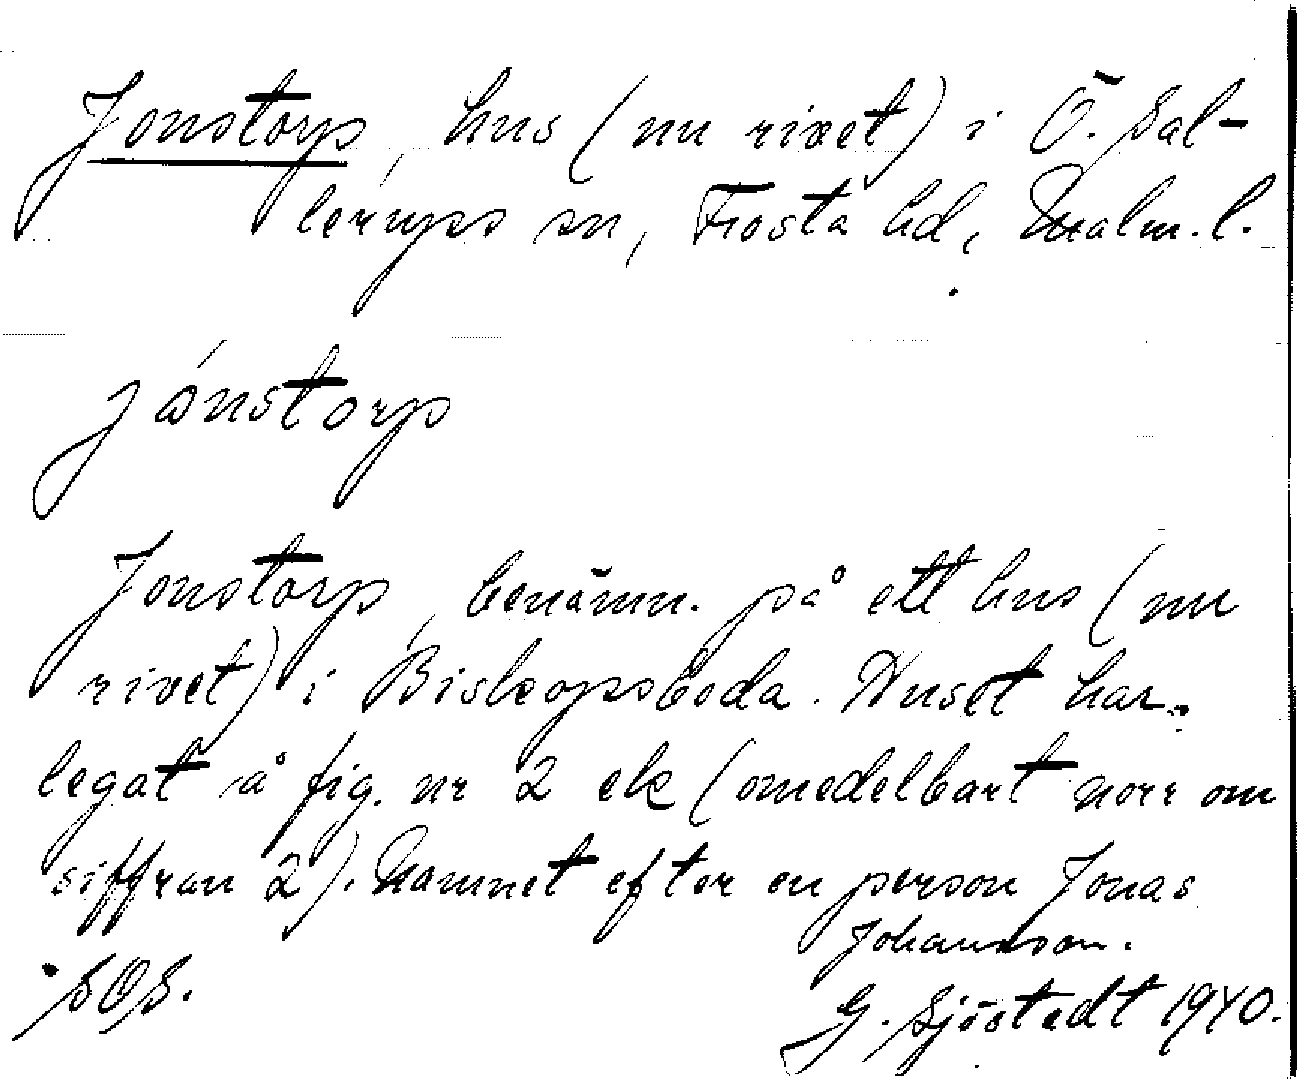 Jonstorp, hus (nu rivet) i Ö. Sal-
lerups sn, Frosta hd, Malm. l.
jónstorp
Jonstorp, benämn. på ett hus (nu
rivet) i Biskopsboda. Huset har
legat å fig. nr 2 ek (omedelbart norr om
siffran 2). Namnet efter en person Jonas
Johansson.
SOS.
G. Sjöstedt 1940.